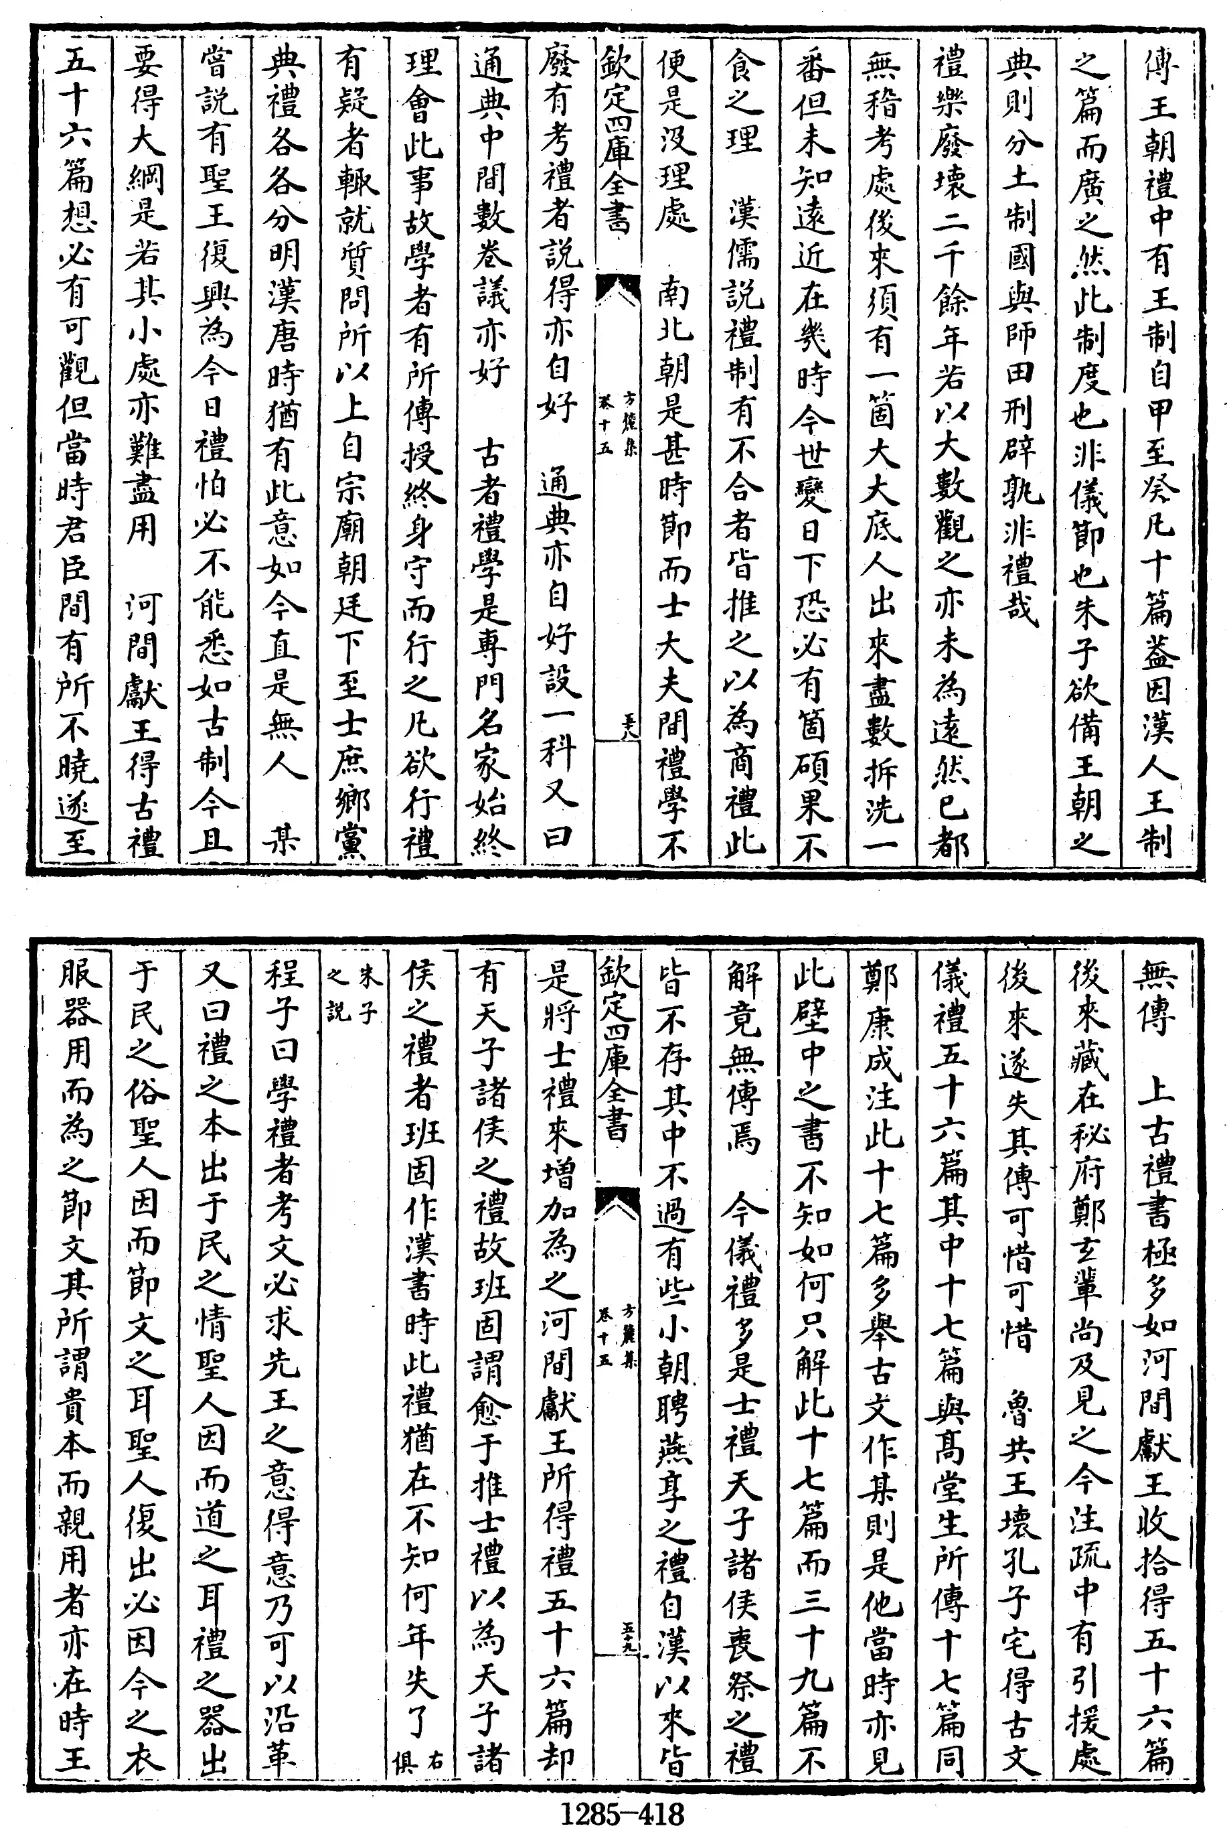 傳王朝禮中有王制自甲至癸凡十篇葢因漢人王制
之篇而廣之然此制度也非儀節也朱子欲備王朝之
典則分土制國與師田刑辟孰非禮哉
禮樂廢壞二千餘年若以大數觀之亦未為遠然已都
無稽考處後來須有一箇大大底人出來盡數拆洗一
番但未知遠近在㡬時今世變日下恐必有箇碩果不
食之理　漢儒說禮制有不合者皆推之以為商禮此
便是没理處　南北朝是甚時節而士大夫間禮學不
欽定四庫全書
方麓集
卷十五
五十八
廢有考禮者說得亦自好　通典亦自好設一科又曰
通典中間數卷議亦好　古者禮學是專門名家始終
理會此事故學者有所傳授終身守而行之凡欲行禮
有疑者輙就質問所以上自宗廟朝廷下至士庶鄉黨
典禮各各分明漢唐時猶有此意如今直是無人　某
嘗説有聖王復興為今日禮怕必不能悉如古制今且
要得大綱是若其小處亦難盡用　河間獻王得古禮
五十六篇想必有可觀但當時君臣間有所不曉遂至
無傳　上古禮書極多如河間獻王收拾得五十六篇
後來藏在秘府鄭玄輩尚及見之今注疏中有引援處
後來遂失其傳可惜可惜　魯共王壞孔子宅得古文
儀禮五十六篇其中十七篇與髙堂生所傳十七篇同
鄭康成注此十七篇多舉古文作某則是他當時亦見
此壁中之書不知如何只解此十七篇而三十九篇不
解竟無傳焉　今儀禮多是士禮天子諸侯喪祭之禮
皆不存其中不過有些小朝聘燕享之禮自漢以來皆
欽定四庫全書
方麓集
卷十五
五十九
是將士禮來增加為之河間獻王所得禮五十六篇却
有天子諸侯之禮故班固謂愈于推士禮以為天子諸
侯之禮者班固作漢書時此禮猶在不知何年失了右俱
朱子之説
程子曰學禮者考文必求先王之意得意乃可以沿革
又曰禮之本出于民之情聖人因而道之耳禮之器出
于民之俗聖人因而節文之耳聖人復出必因今之衣
服器用而為之節文其所謂貴本而親用者亦在時王
1285-418